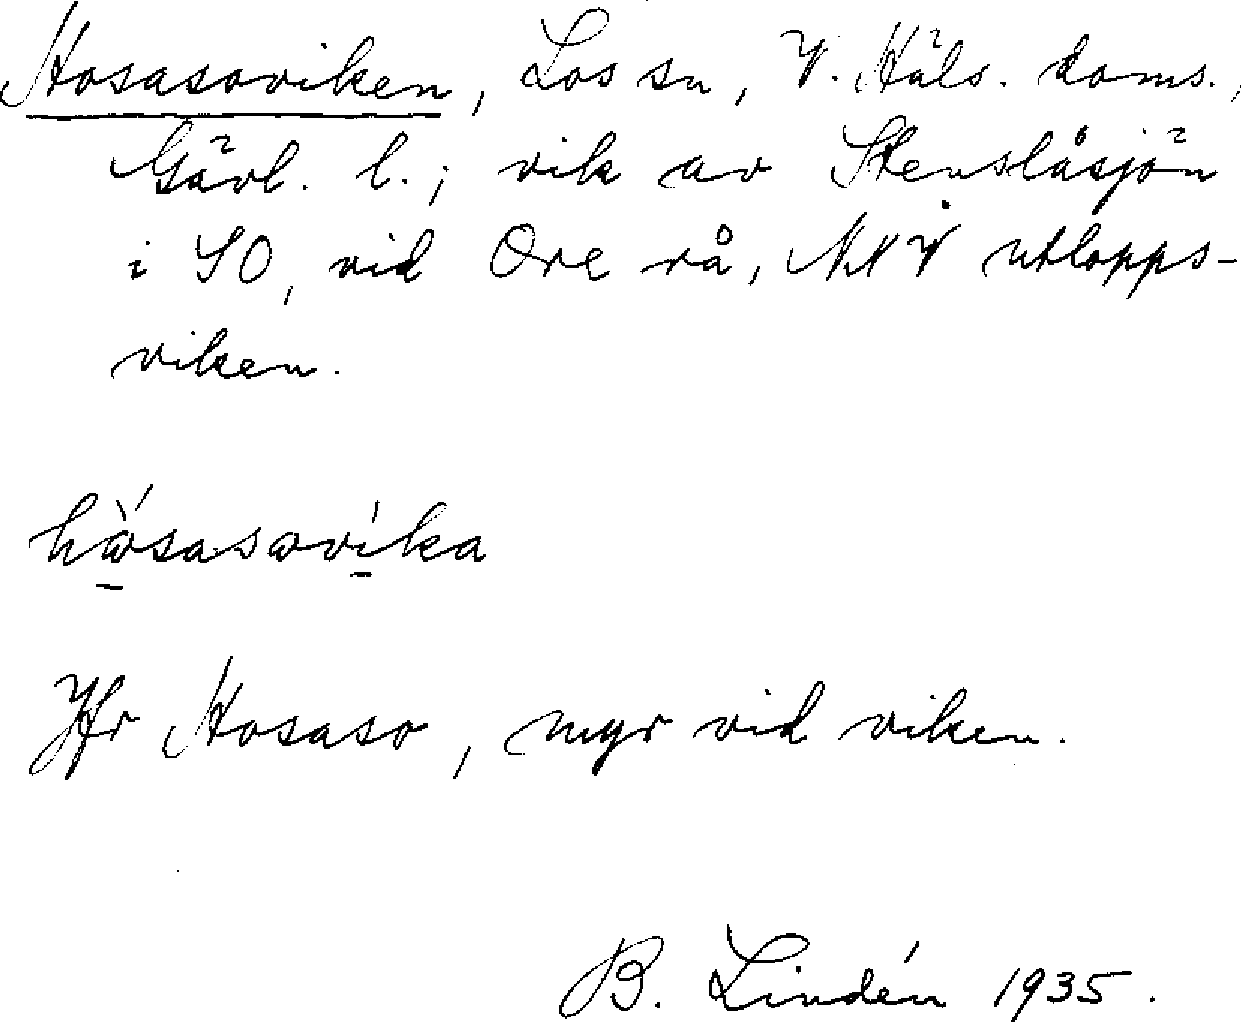 Hosasoviken, Los sn, V. Häls. doms.,
Gävl. l.; vik av Stenslåsjön
i SO, vid Ore rå, NNV utlopps-
viken.
Jfr Hosaso, myr vid viken.
B. Lindén 1935.